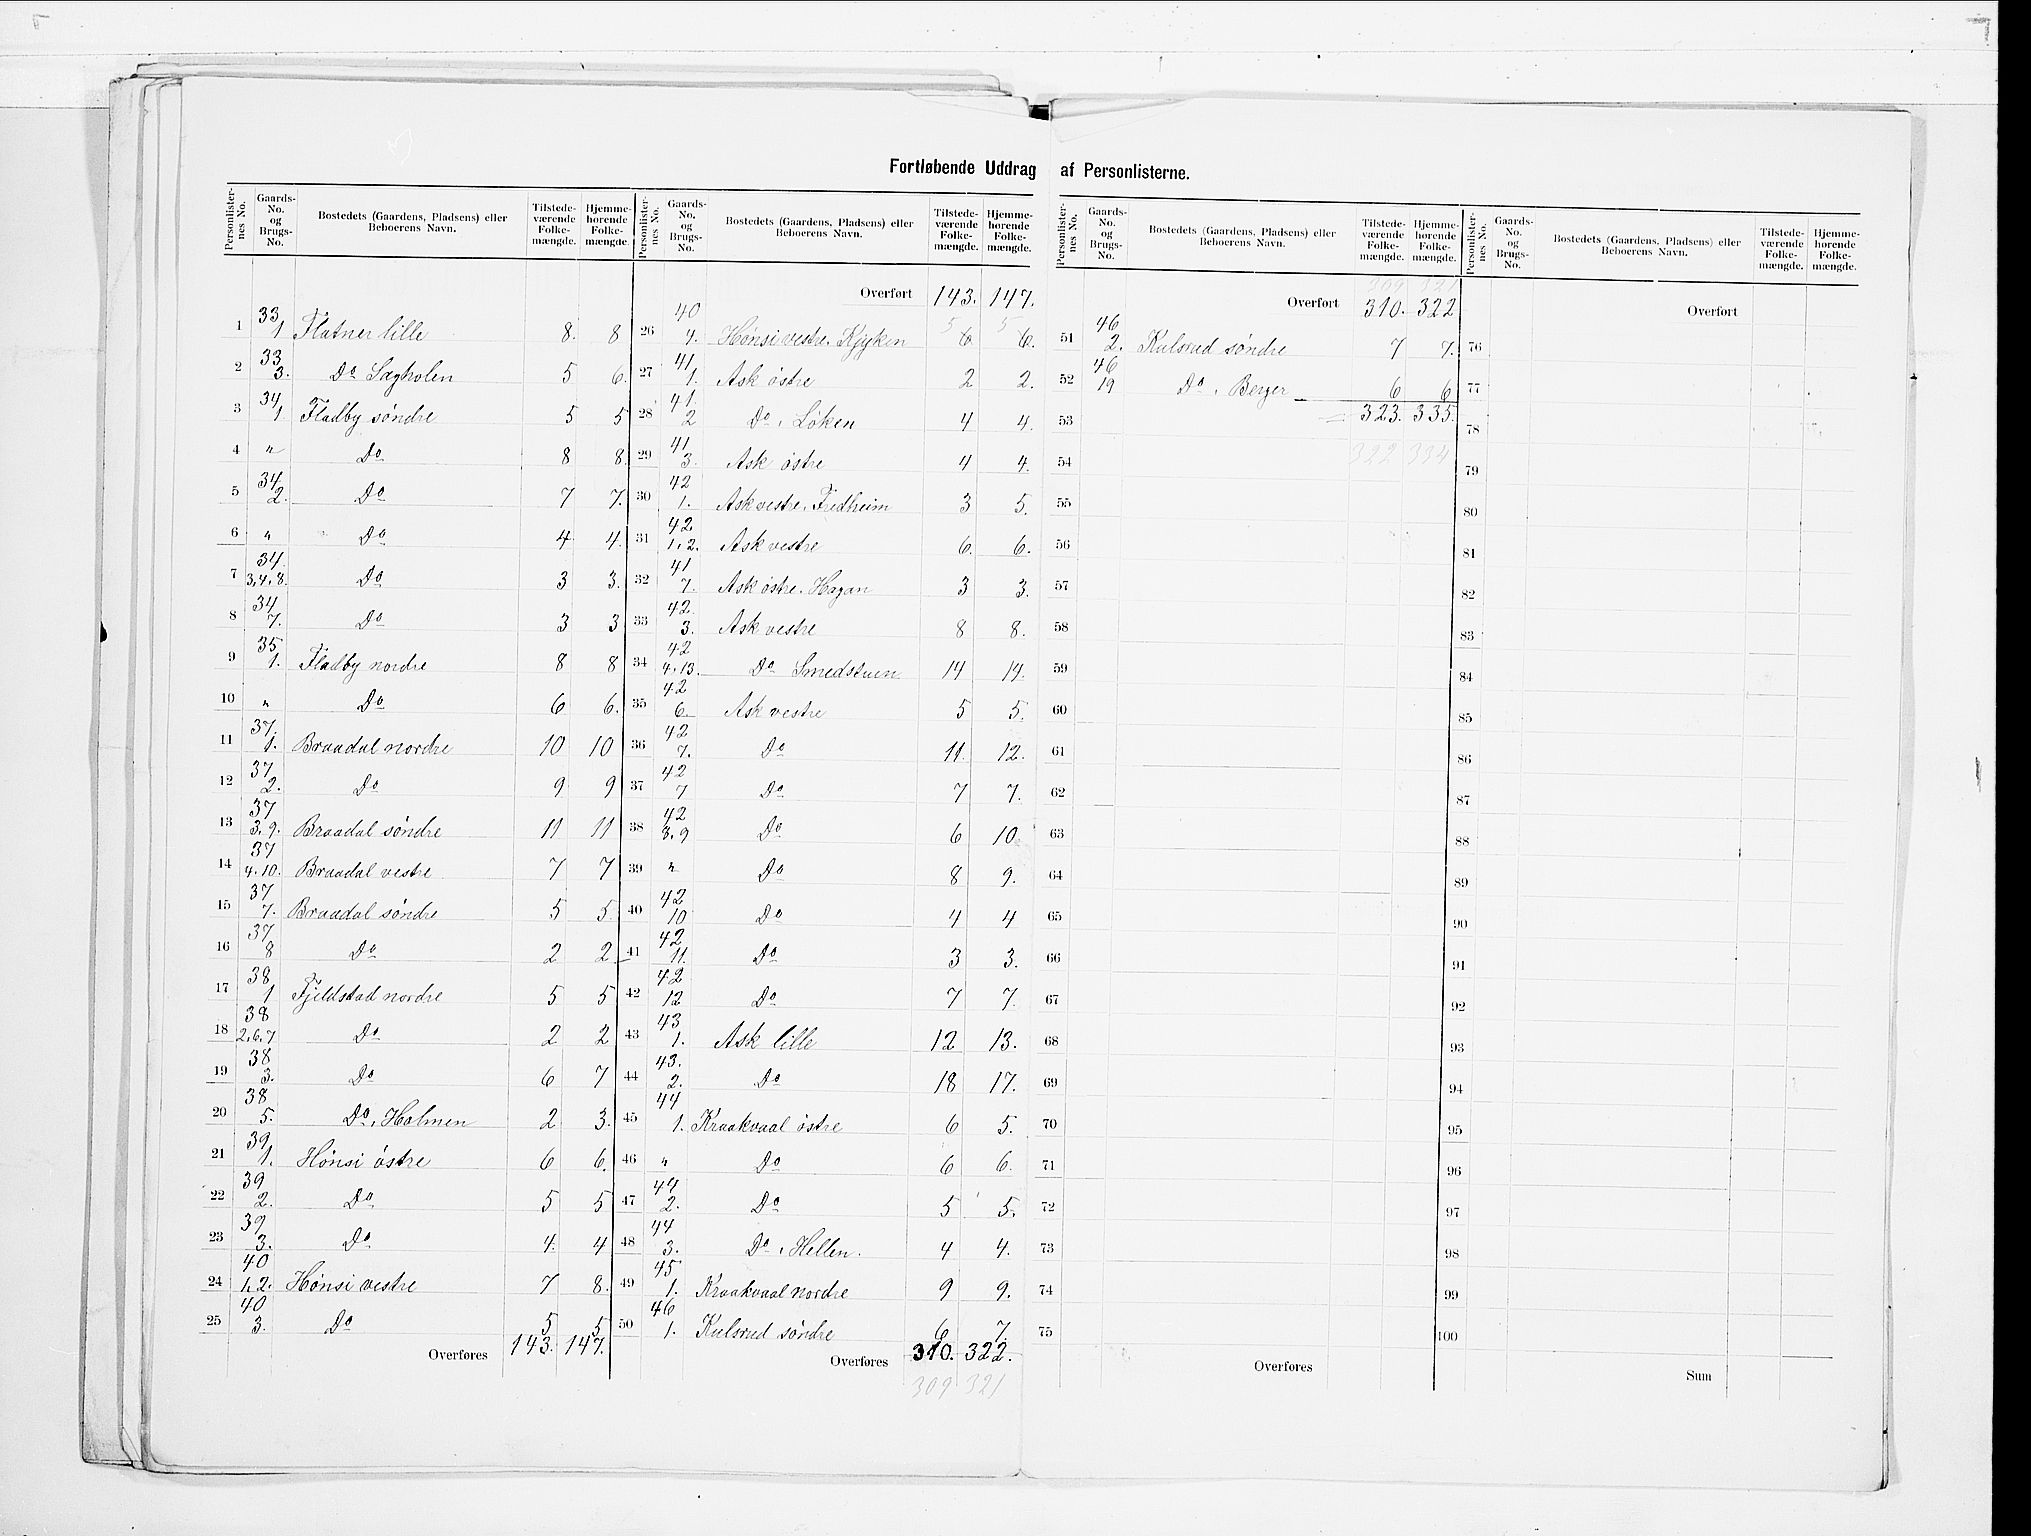 Fortløbende Uddrag af Personlisterne.
Personlister-nes No. | Gaards-No. og Brugs-No. | Bostedets (Gaardens, Pladsens) eller Beboerens Navn. | Tilstede-værende Folke-mængde. | Hjemme-hørende Folke-mængde.
1 | 33 1. | Flatner lille | 8. | 8
2 | 33 3. | Do Sagholen | 5 | 6.
3 | 34 1. | Fladby søndre | 5 | 5
4 | " | Do | 8 | 8.
5 | 34 2. | Do | 7 | 7.
6 | " | Do | 4 | 4.
7 | 34. 3,4,8. | Do | 3 | 3.
8 | 34 7. | Do | 3 | 3
9 | 35 1. | Fladby nordre | 8 | 8
10 | " | Do | 6 | 6.
11 | 37. 1. | Braadal nordre | 10 | 10
12 | 37 2. | Do | 9 | 9
13 | 37 3,9. | Braadal søndre | 11 | 11
14 | 37 4.10. | Braadal vestre | 7 | 7
15 | 37 7. | Braadal søndre | 5 | 5.
16 | 37 8 | Do | 2 | 2.
17 | 38 1 | Fjeldstad nordre | 5 | 5
18 | 38 2,6,7 | Do | 2 | 2
19 | 38 3. | Do | 6 | 7
20 | 38 5. | Do, Holmen | 2 | 3.
21 | 39 1. | Hønsi østre | 6 | 6.
22 | 39 2. | Do | 5 | 5
23 | 39 3. | Do | 4. | 4
24 | 40 1,2. | Hønsi vestre | 7 | 8.
25 | 40 3. | Do | 5 | 5
Overføres 143. 147.
Personlister-nes No. | Gaards-No. og Brugs-No. | Bostedets (Gaardens, Pladsens) eller Beboerens Navn. | Tilstede-værende Folke-mængde. | Hjemme-hørende Folke-mængde.
Overført 143. 147.
5 5
26 | 40 4. | Hønsi vestre, Kjøken | 6 | 6.
27 | 41 1. | Ask østre | 2 | 2.
28 | 41. 2 | Do, Løken | 4 | 4.
29 | 41 3. | Ask østre | 4 | 4.
30 | 42 1. | Ask vestre, Fredheim | 3 | 5.
31 | 42. 1,2. | Ask vestre | 6. | 6.
32 | 41 7. | Ask østre, Hagan | 3 | 3.
33 | 42. 3. | Ask vestre | 8 | 8.
34 | 42 4,13. | Do Smedstuen | 14 | 14.
35 | 42 6. | Ask vestre | 5 | 5.
36 | 42 7. | Do | 11. | 12.
37 | 42 7 | Do | 7 | 7.
38 | 42 3,9 | Do | 6 | 10.
39 | " | Do | 8 | 9.
40 | 42 10 | Do | 4 | 4
41 | 42 11. | Do | 3 | 3.
42 | 42 12 | Do | 7 | 7.
43 | 43 1. | Ask lille | 12 | 13.
44 | 43. 2. | Do | 18 | 17.
45 | 44 1. | Kraakvaal østre | 6 | 5.
46 | " | Do | 6 | 6.
47 | 44 2. | Do | 5 | 5.
48 | 44 3. | Do, Hellen. | 4 | 4.
49 | 45 1. | Kraakvaal nordre | 9 | 9.
50 | 46 1. | Kulsrud søndre | 6 | 7.
Overføres 310. 322.
309 321
Personlister-nes No. | Gaards-No. og Brugs-No. | Bostedets (Gaardens, Pladsens) eller Beboerens Navn. | Tilstede-værende Folke-mængde. | Hjemme-hørende Folke-mængde.
309 321
Overført 310. 322
51 | 46 2. | Kulsrud søndre | 7 | 7.
52 | 46 19 | Do, Berger | 6 | 6
53 | 323. 335.
54 | 322 334
55
56
57
58
59
60
61
62
63
64
65
66
67
68
69
70
71
72
73
74
75
Overføres
Personlister-nes No. | Gaards-No. og Brugs-No. | Bostedets (Gaardens, Pladsens) eller Beboerens Navn. | Tilstede-værende Folke-mængde. | Hjemme-hørende Folke-mængde.
Overført
76
77
78
79
80
81
82
83
84
85
86
87
88
89
90
91
92
93
94
95
96
97
98
99
100
Sum